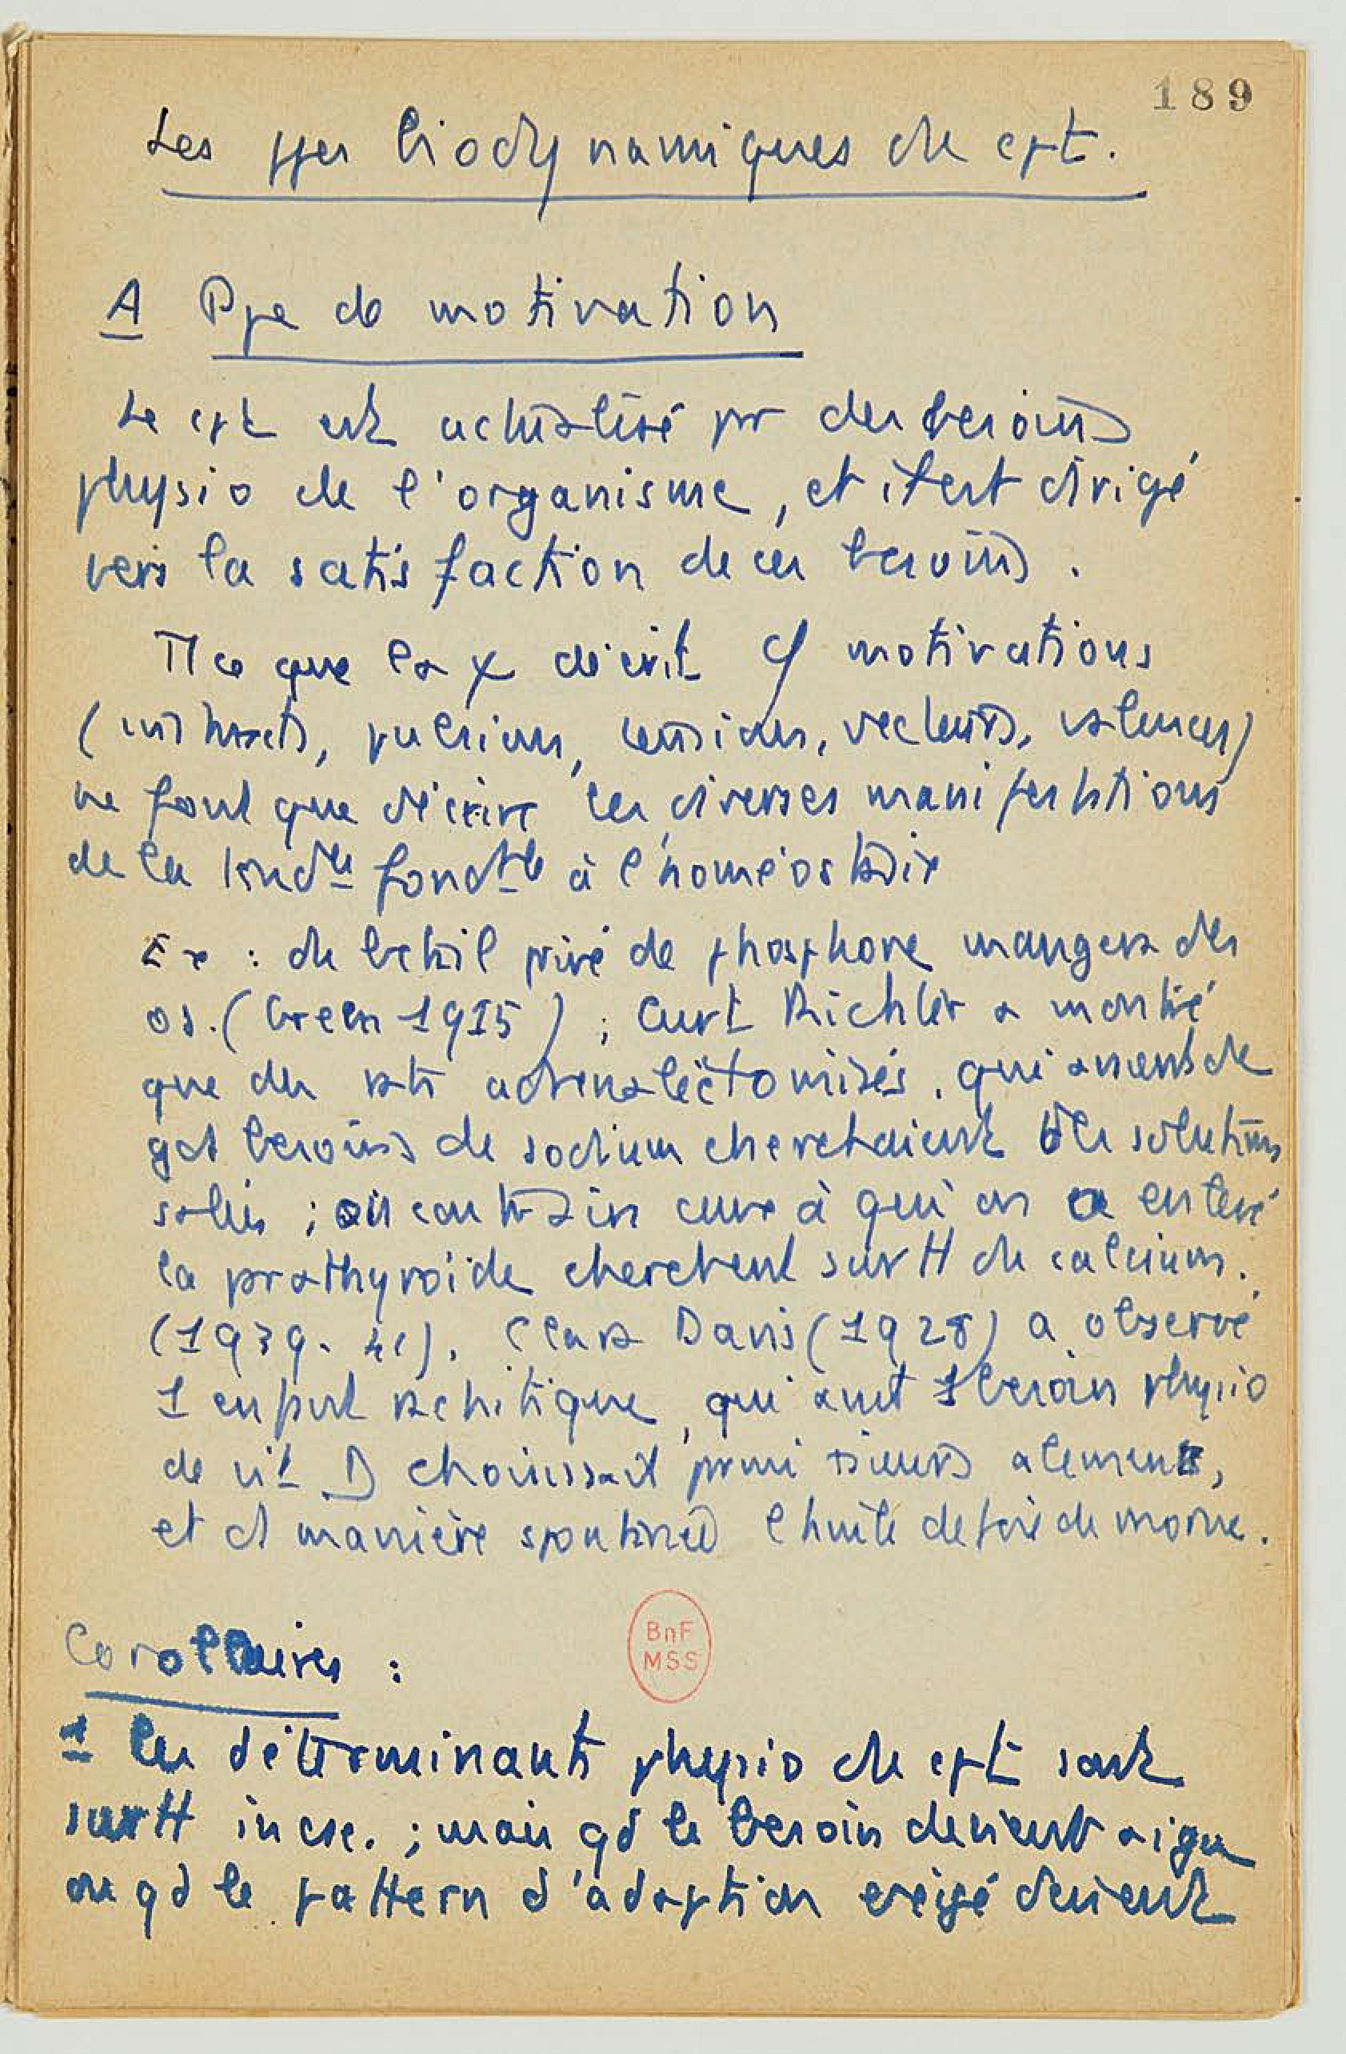 189
Les ppes biodynamiques du cpt.
A Ppe de motivation
Le cpt est actualisé pr des besoins
physio de l'organisme, et il est dirigé
vers la satisfaction de ces besoins.
Tt ce que la χ décrit cô motivations
(instincts, pulsions, tensions, vecteurs, valences)
ne font que décrire les diverses manifestations
de la tendce fondtle à l'homéostasie
Ex : du bétail privé de phosphore mangera des
os. (Green 1925) ; Curt Richter a montré
que des rats adrénalectomisés, qui avaient de
gds besoins de sodium cherchaient des solutions
salées ; au contraire ceux à qui on a enlevé
la parathyroïde cherchent surtt du calcium.
(1939-41). Clara Davis (1928) a observé
1 enfant rachitique, qui avait 1 besoin physio
de vit D choisissait parmi aliments,
et de manière spontanée l'huile de foie de morue.
BnF
MSS
Corollaires :
1 Les déterminants physio du cpt sont
surtt incs. ; mais qd le besoin devient aigu
ou qd le pattern d'adaption exigé devient